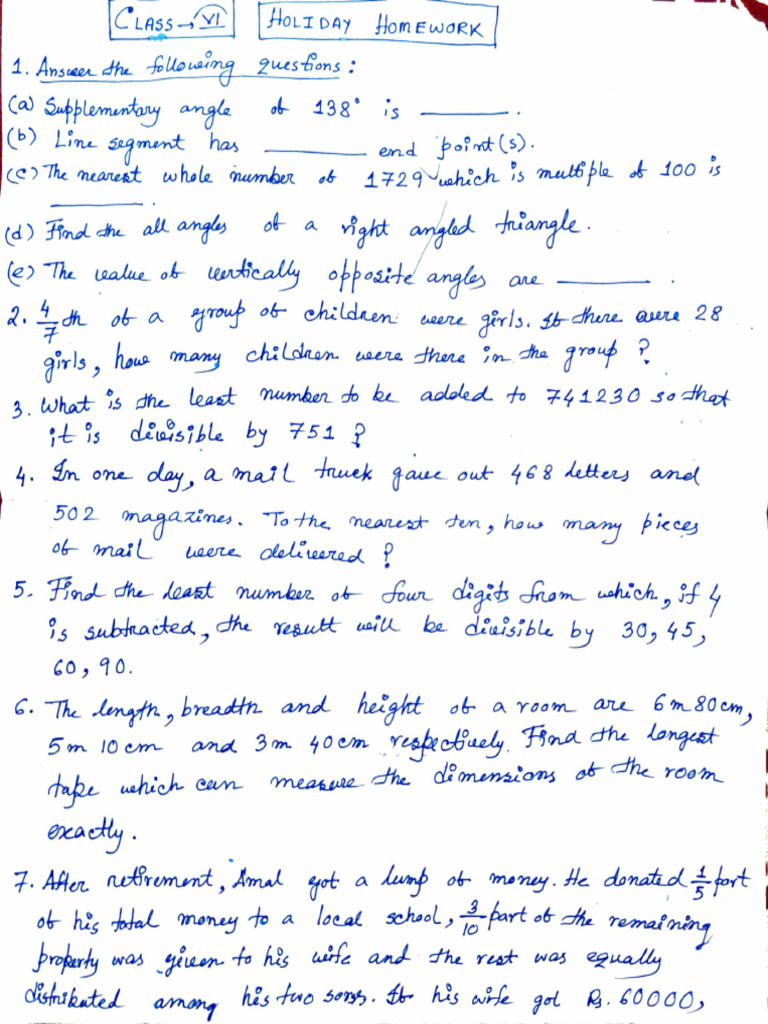 CLASS → VI HOLIDAY HOMEWORK
1. Answer the following questions:
(a) Supplementary angle of 138° is ______.
(b) Line segment has ______ end point(s).
(c) The nearest whole number of 1729 which is multiple of 100 is
______.
(d) Find the all angles of a right angled triangle.
(e) The value of vertically opposite angles are ______.
2. 4/7 th of a group of children were girls. If there were 28
girls, how many children were there in the group?
3. What is the least number to be added to 741230 so that
it is divisible by 751?
4. In one day, a mail truck gave out 468 letters and
502 magazines. To the nearest ten, how many pieces
of mail were delivered?
5. Find the least number of four digits from which, if 4
is subtracted, the result will be divisible by 30, 45,
60, 90.
6. The length, breadth and height of a room are 6m 80cm,
5m 10cm and 3m 40cm respectively. Find the longest
tape which can measure the dimensions of the room
exactly.
7. After retirement, Amal got a lump of money. He donated 1/5 part
of his total money to a local school, 3/10 part of the remaining
property was given to his wife and the rest was equally
distributed among his two sons. If his wife got Rs. 60000,